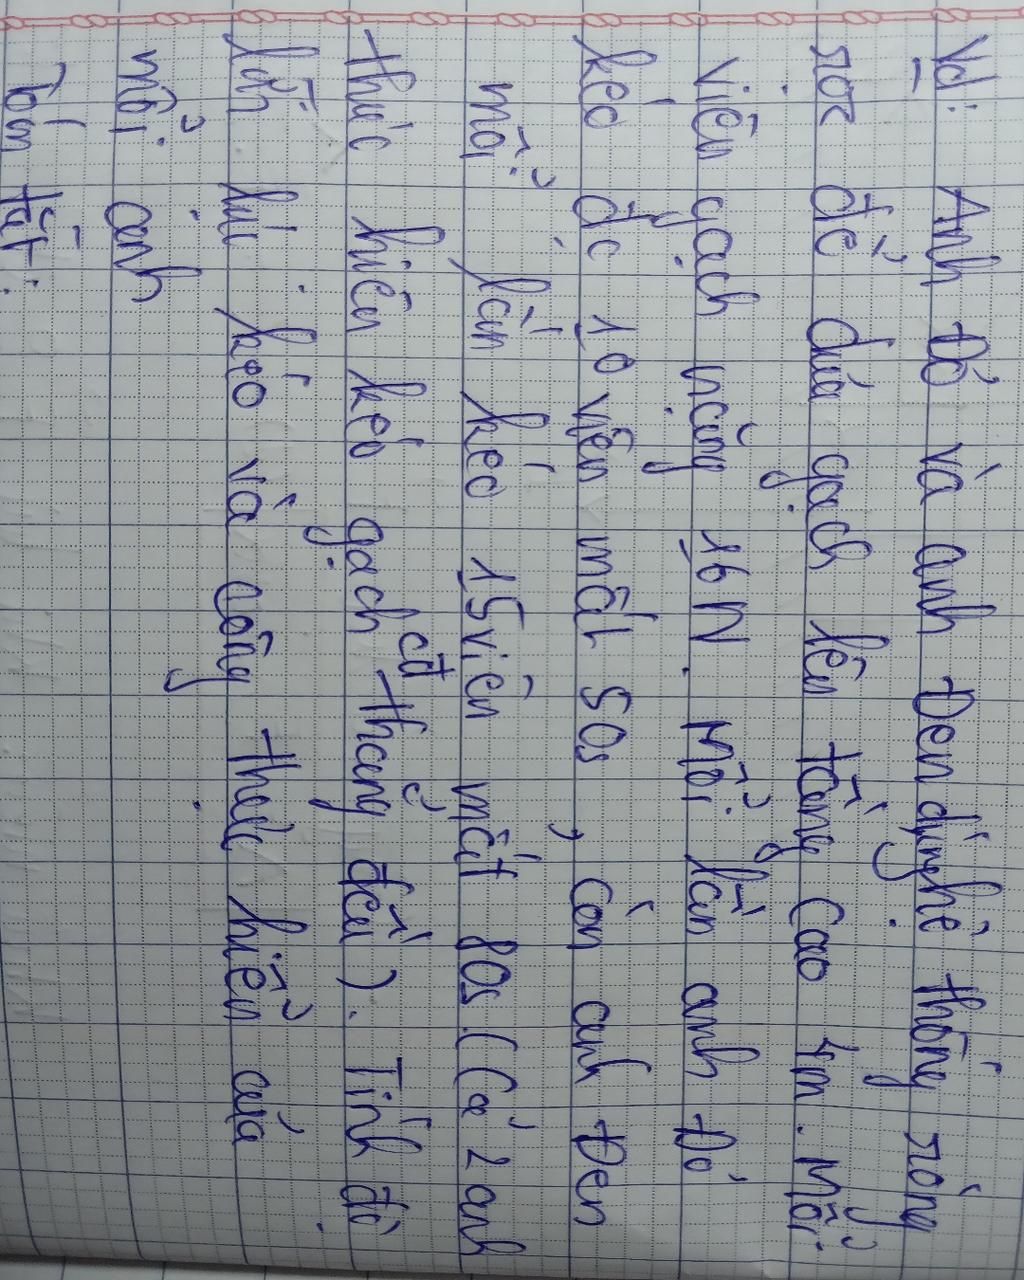 Vd: Anh Đỏ và anh Đen dùng hệ thống ròng
rọc để đưa gạch lên tầng cao 4m. Mỗi
viên gạch nặng 16N. Mỗi lần anh Đỏ
kéo đc 10 viên mất 50s, còn anh Đen
mỗi lần kéo 15 viên mất 80s. (Cả 2 anh
thực hiện kéo gạch cđ thẳng đều). Tính độ
lớn lực kéo và công thực hiện của
mỗi anh
Tóm tắt: